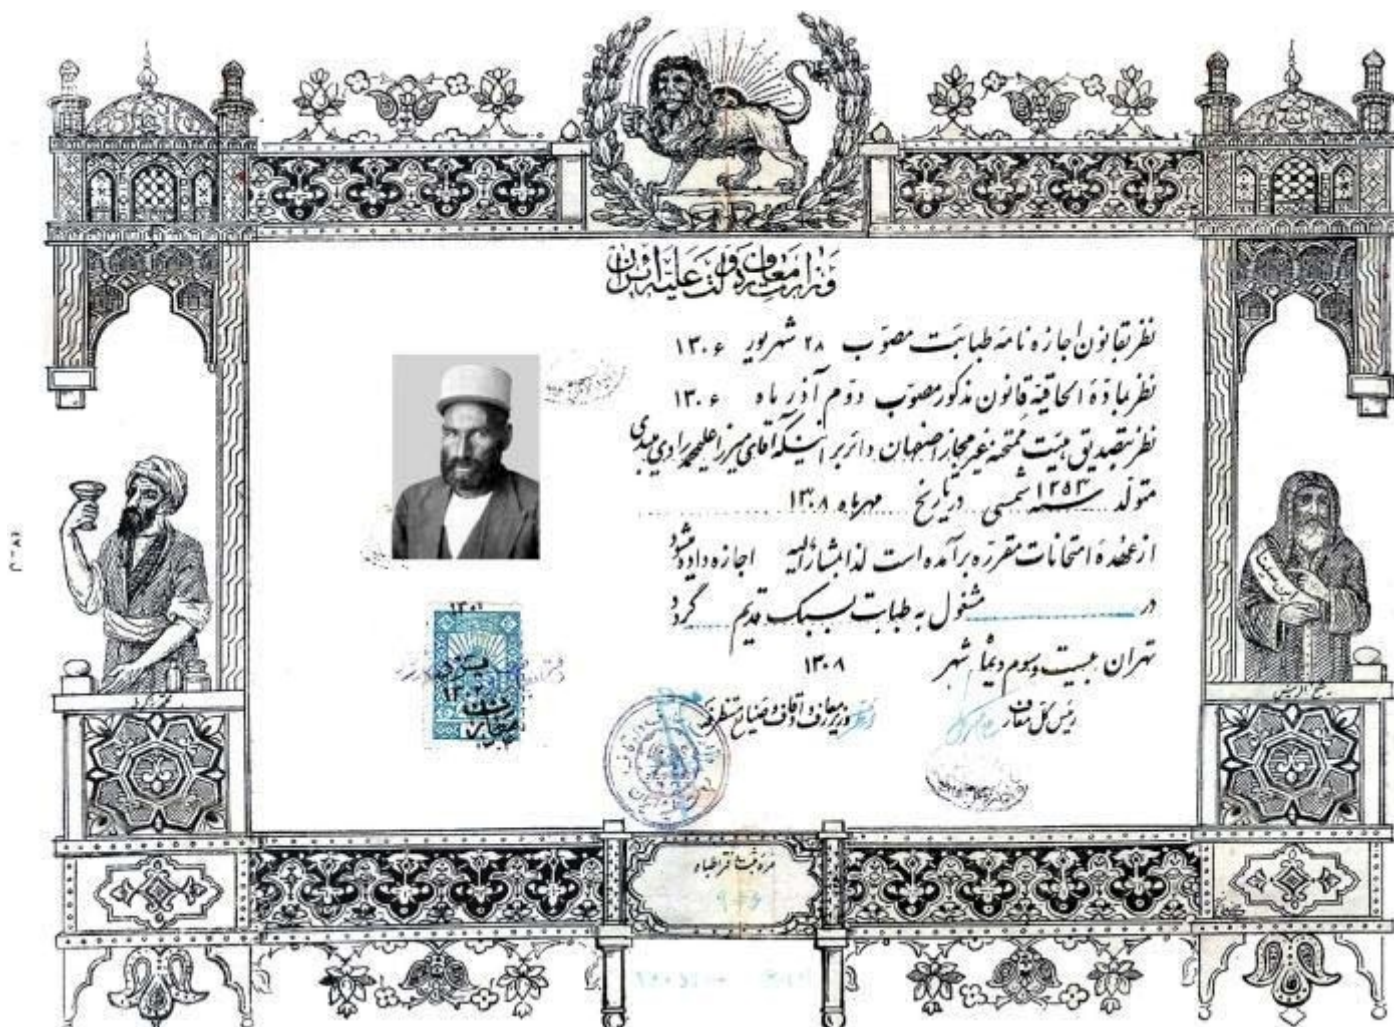 وزارت معارف دولت علیه ایران
نظر بقانون اجازه نامه طبابت مصوّب ۲۸ شهریور ۱۳۰۶
نظر بمادّهٔ الحاقیهٔ قانون مذکور مصوب دوّم آذر ماه ۱۳۰۶
نظر بتصدیق هیئت ممتحنه غیر مجاز اصفهان دائر بر اینکه آقای میرزا علیمحمد رادی میبدی
متولّد سنه ۱۲۵۳ شمسی در تاریخ مهر ماه ۱۳۰۸
از عهدهٔ امتحانات مقرّره برآمده است لذا بمشارٌالیه اجازه داده میشود
در مشغول به طبابت بسبک قدیم گردد
تهران بیست و سوم دیماه شهر ۱۳۰۸
رئیس کل معارف
وزیر معارف و اوقاف و صنایع مستظرفه
شیخ الرئیس
ابن سینا
نمره ثبت دفتر اطباء
۹۰۶